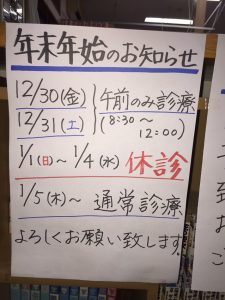 年末年始のお知らせ
12/30(金)
12/31(土)
午前のみ診療
(8:30〜
12:00)
1/1(日)〜1/4(水) 休診
1/5(木)〜 通常診療
よろしくお願い致します。